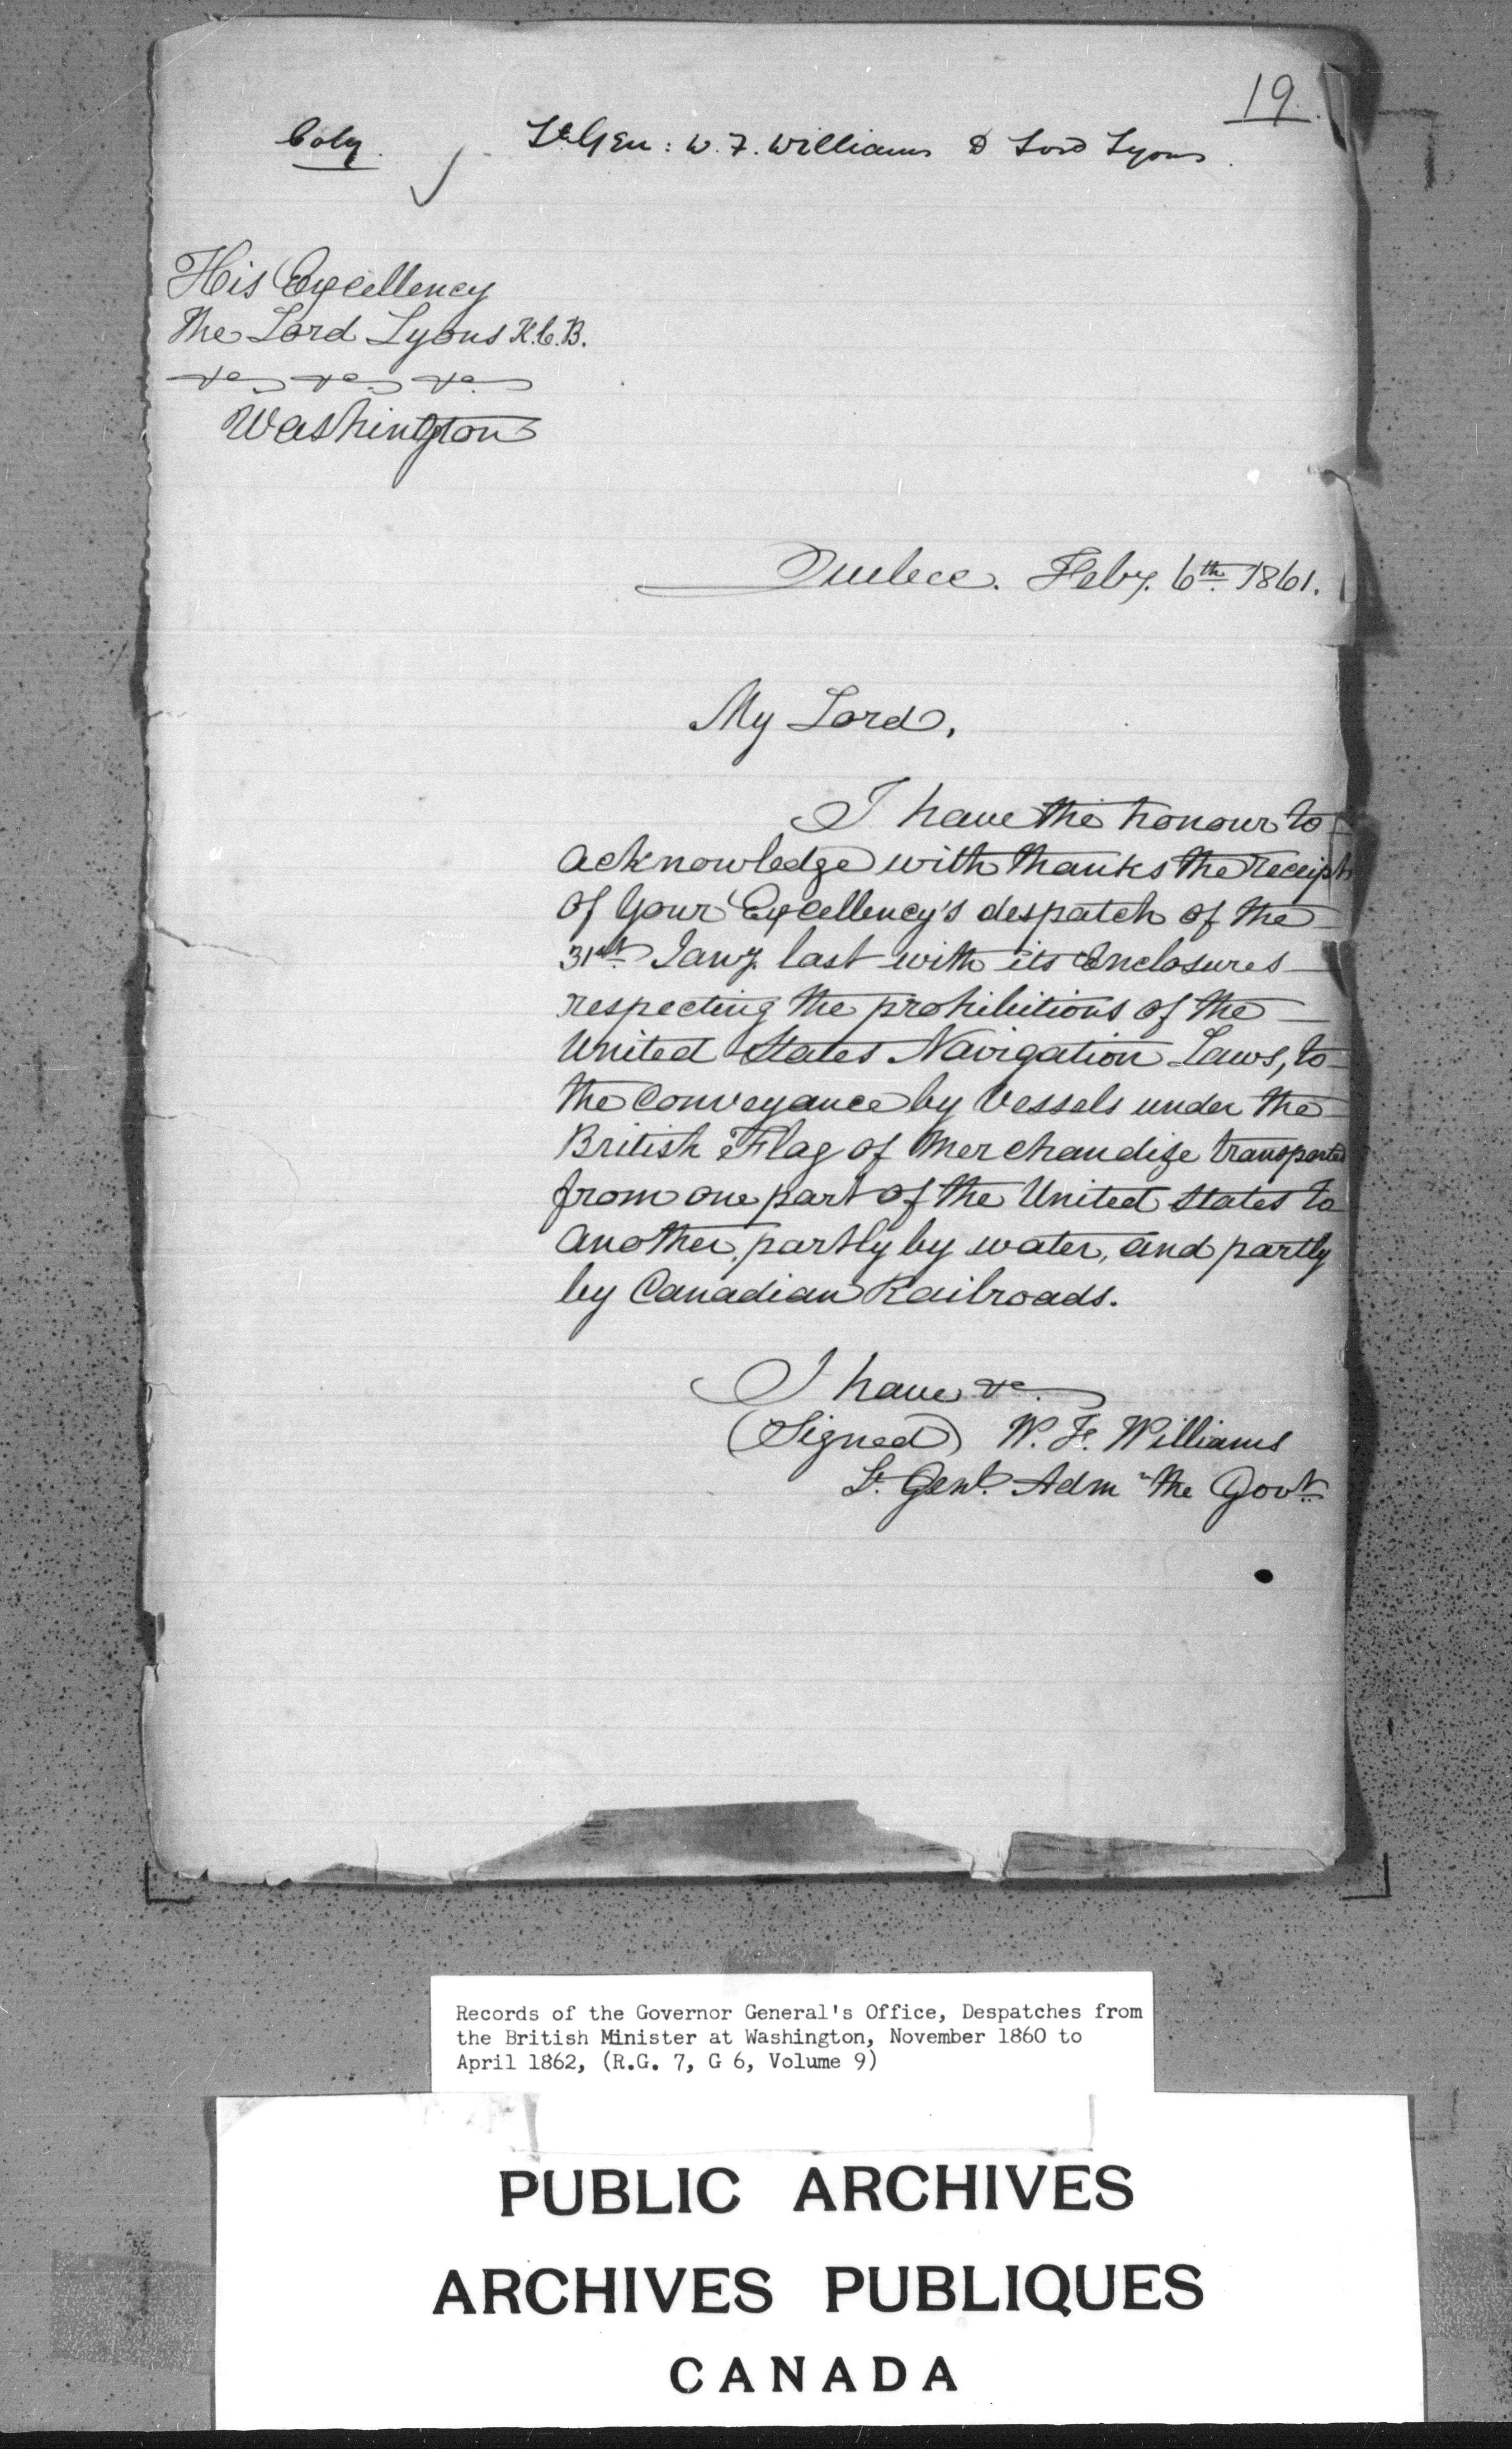 19.
Copy. Lt Gen: W. F. Williams to Lord Lyons.
His Excellency
The Lord Lyons K.C.B.
&c &c &c
Washington
Quebec. Feby. 6th 1861.
My Lord,
I have the honour to
acknowledge with thanks the receipt
of Your Excellency's despatch of the
31st Jany. last with its Enclosures
respecting the prohibitions of the
United States Navigation Laws, to
the Conveyance by Vessels under the
British Flag of Merchandize transported
from one part of the United States to
another, partly by water, and partly
by Canadian Railroads.
I have &c.
(Signed) W. F. Williams
Lt. Genl. Adm the Govt.
Records of the Governor General's Office, Despatches from
the British Minister at Washington, November 1860 to
April 1862, (R.G. 7, G 6, Volume 9)
PUBLIC ARCHIVES
ARCHIVES PUBLIQUES
CANADA